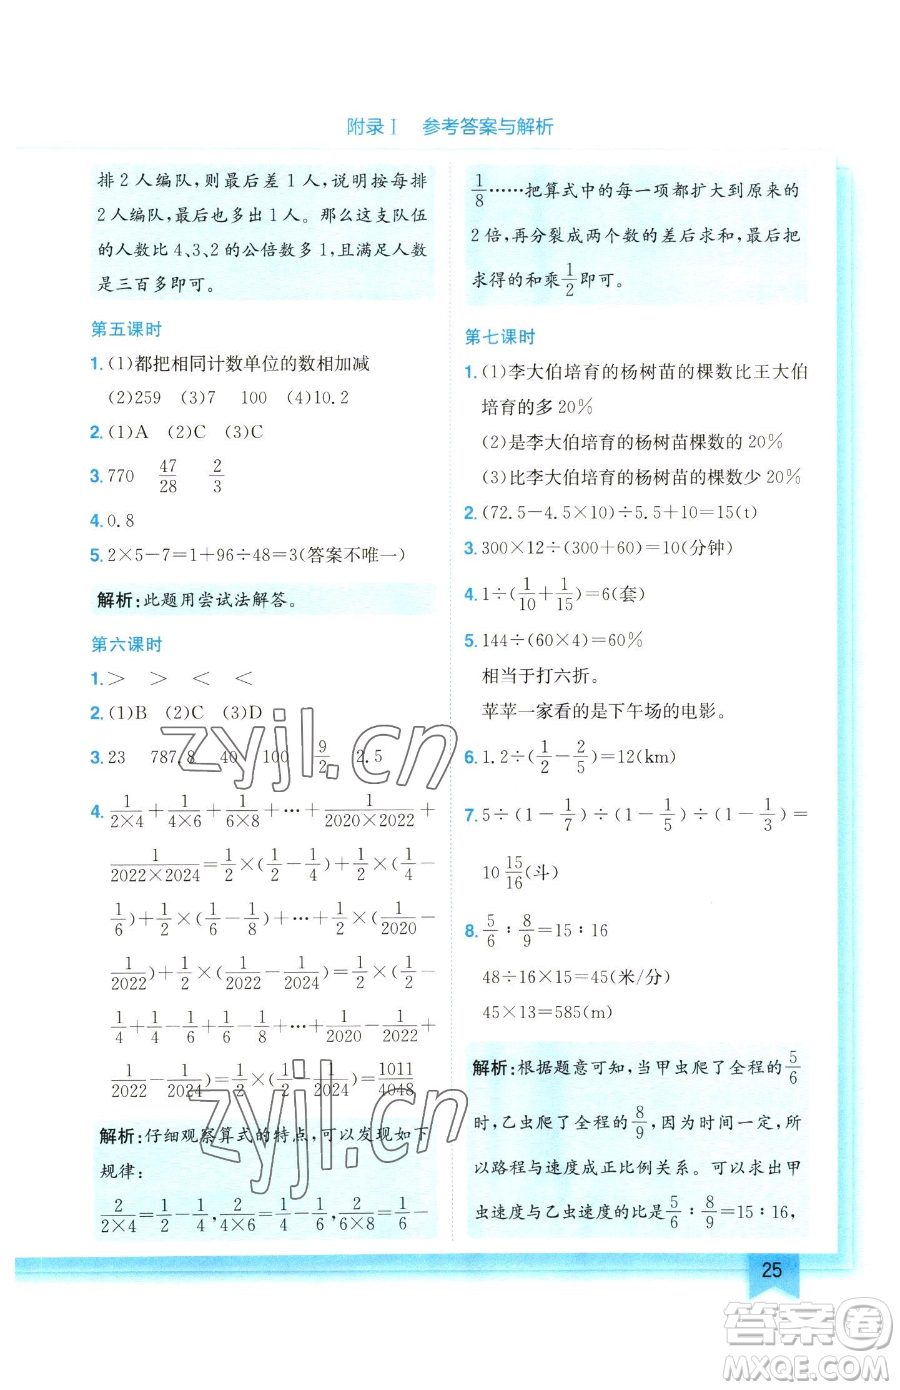 附录Ⅰ 参考答案与解析
排2人编队,则最后差1人,说明按每排
2人编队,最后也多出1人。那么这支队伍
的人数比4、3、2的公倍数多1,且满足人数
是三百多即可。
第五课时
1. (1)都把相同计数单位的数相加减
(2)259 (3)7 100 (4)10.2
2. (1)A (2)C (3)C
3. 770 47/28 2/3
4. 0.8
5. 2×5-7=1+96÷48=3(答案不唯一)
解析:此题用尝试法解答。
第六课时
1. > > < <
2. (1)B (2)C (3)D
3. 23 787.8 40 100 9/2 2.5
4. 1/(2×4)+1/(4×6)+1/(6×8)+…+1/(2020×2022)+
1/(2022×2024)=1/2×(1/2-1/4)+1/2×(1/4-
1/6)+1/2×(1/6-1/8)+…+1/2×(1/2020-
1/2022)+1/2×(1/2022-1/2024)=1/2×(1/2-
1/4+1/4-1/6+1/6-1/8+…+1/2020-1/2022+
1/2022-1/2024)=1/2×(1/2-1/2024)=1011/4048
解析:仔细观察算式的特点,可以发现如下
规律:
2/(2×4)=1/2-1/4,2/(4×6)=1/4-1/6,2/(6×8)=1/6-
1/8……把算式中的每一项都扩大到原来的
2倍,再分裂成两个数的差后求和,最后把
求得的和乘1/2即可。
第七课时
1. (1)李大伯培育的杨树苗的棵数比王大伯
培育的多20%
(2)是李大伯培育的杨树苗棵数的20%
(3)比李大伯培育的杨树苗的棵数少20%
2. (72.5-4.5×10)÷5.5+10=15(t)
3. 300×12÷(300+60)=10(分钟)
4. 1÷(1/10+1/15)=6(套)
5. 144÷(60×4)=60%
相当于打六折。
苹苹一家看的是下午场的电影。
6. 1.2÷(1/2-2/5)=12(km)
7. 5÷(1-1/7)÷(1-1/5)÷(1-1/3)=
10 15/16(斗)
8. 5/6∶8/9=15∶16
48÷16×15=45(米/分)
45×13=585(m)
解析:根据题意可知,当甲虫爬了全程的5/6
时,乙虫爬了全程的8/9,因为时间一定,所
以路程与速度成正比例关系。可以求出甲
虫速度与乙虫速度的比是5/6∶8/9=15∶16,
25
zyjl.cn
zyjl.cn
答案圈
MXQE.COM